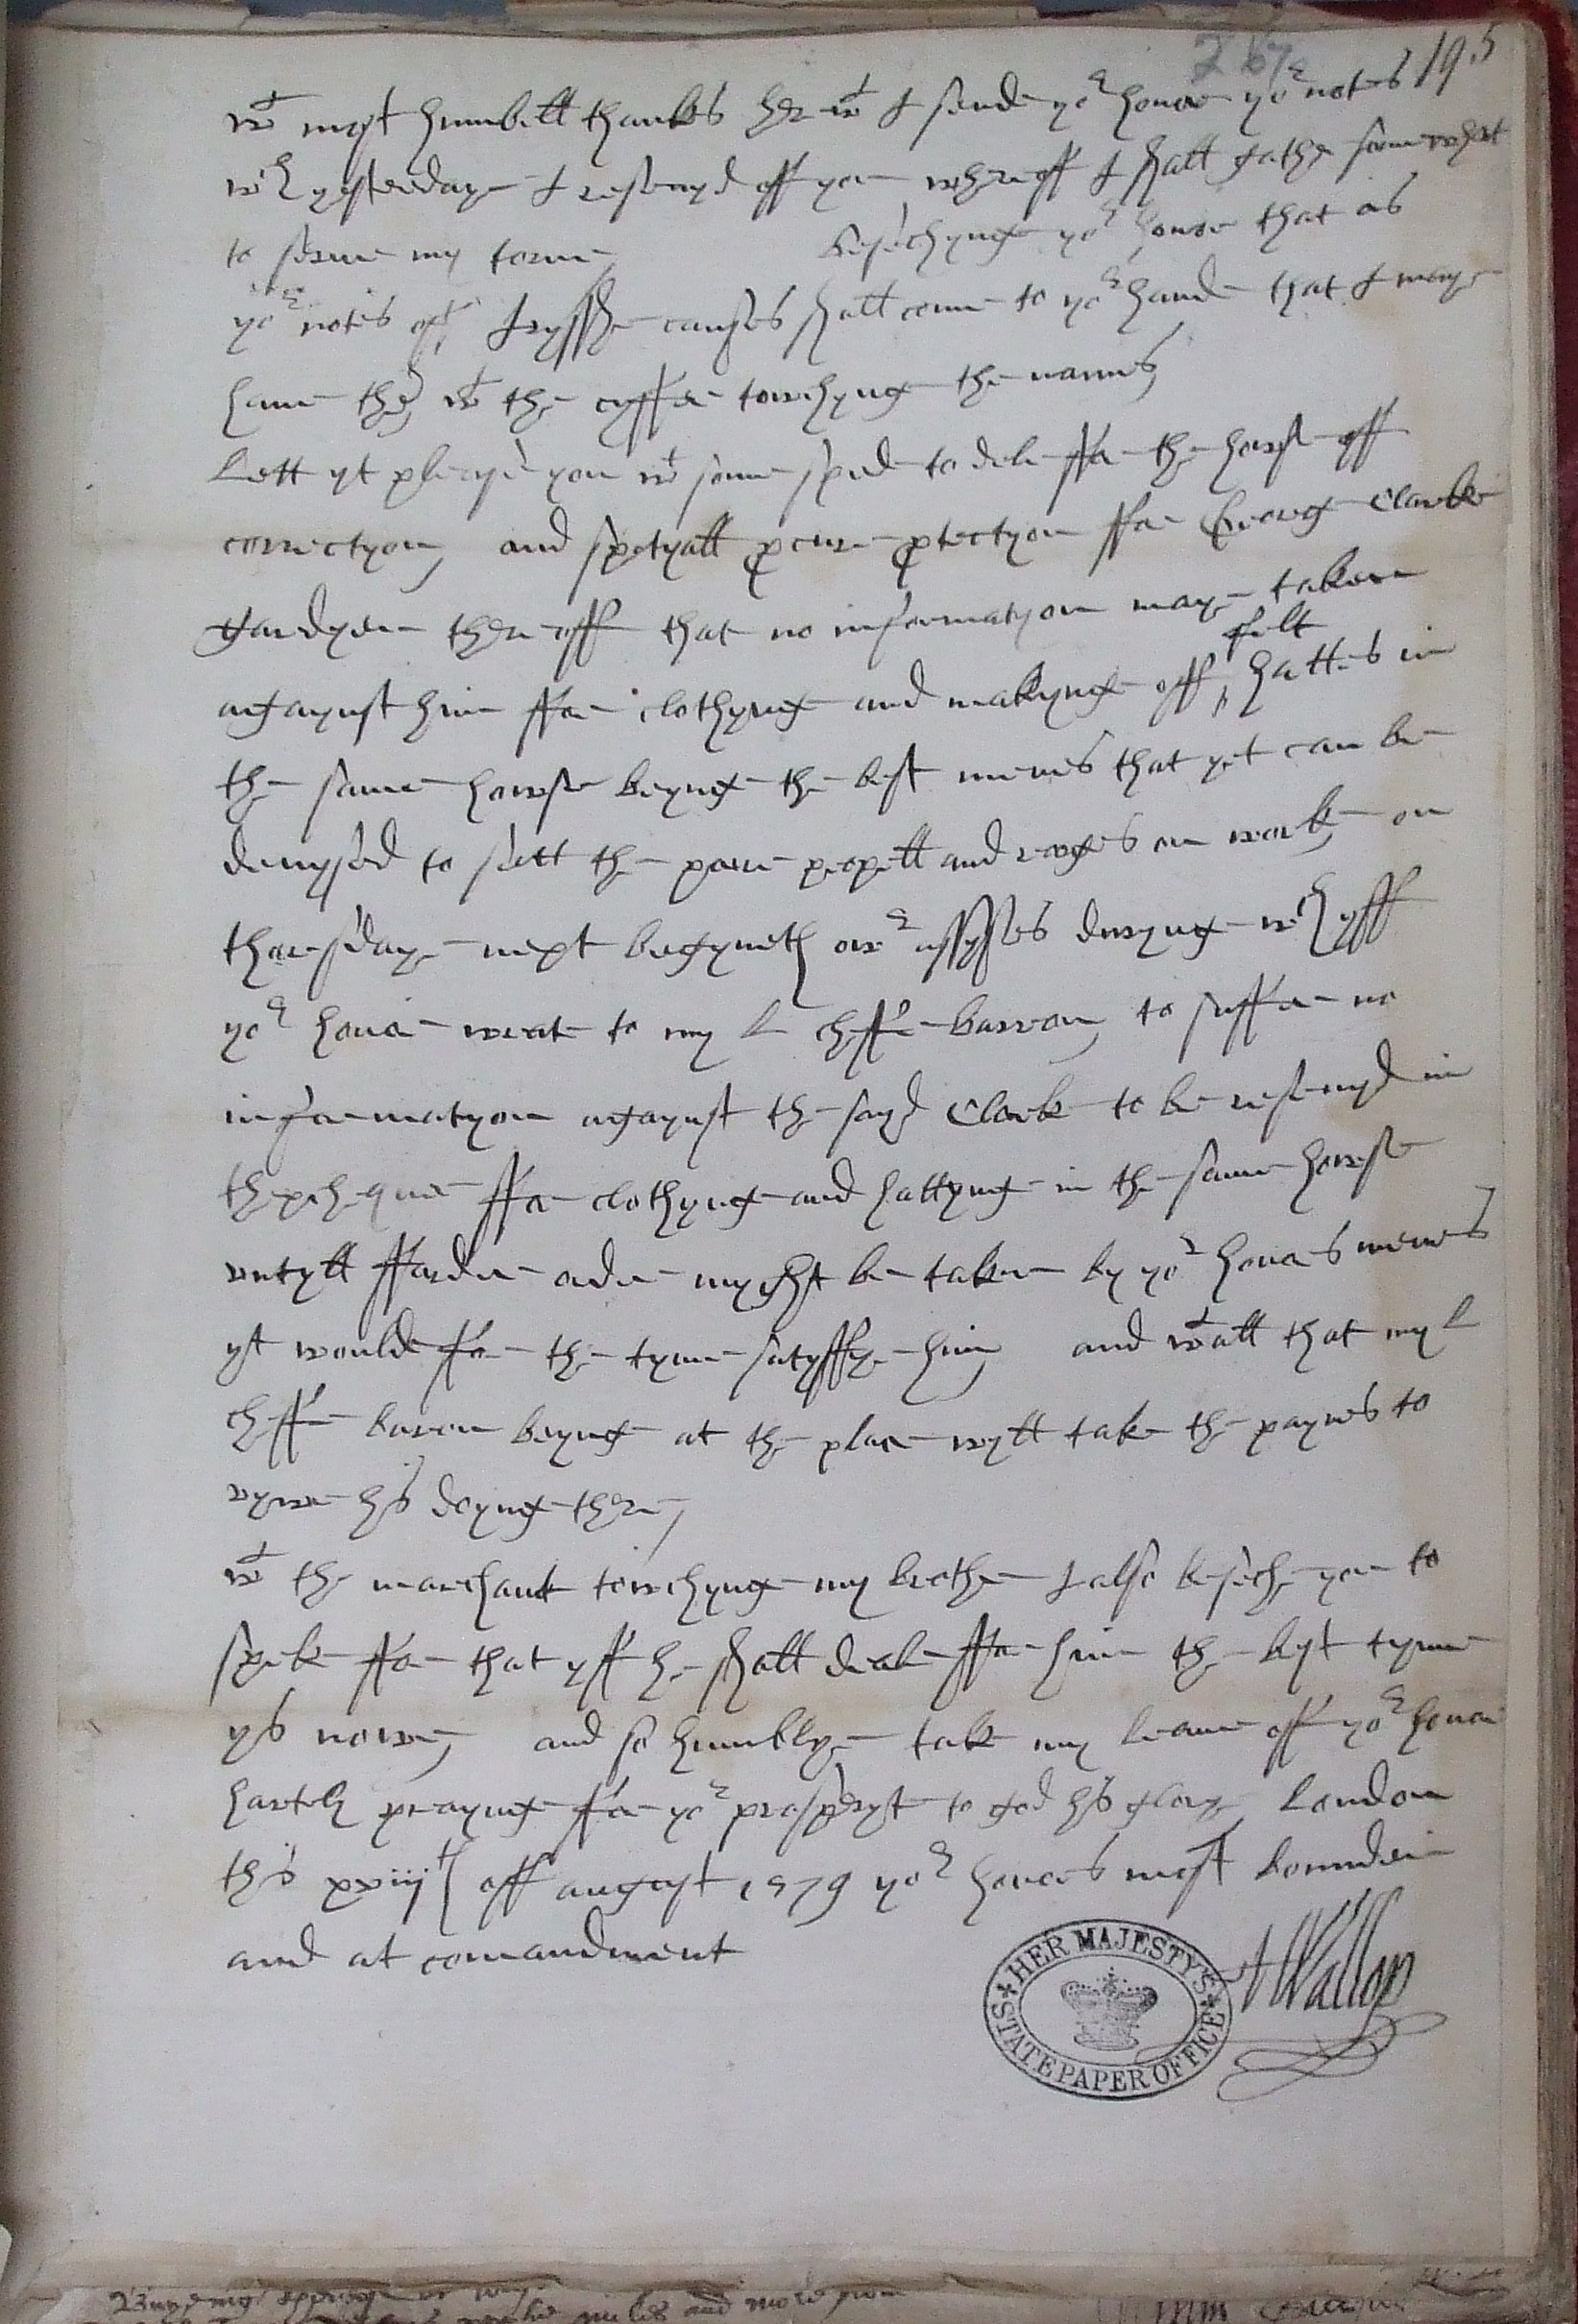 267 195
wt most humbell thankes her wt I send yor honor yor notes
wch yesterdaye I resevyd off you wheroff I shall gather somewhat
to serve my torne besechynge yor honor that as
yor notes off Irysshe causes shall come to yor hande that I maye
have them wt the cyffer towchynge the names
Lett yt please you wt some spede to dele ffor the howse off
correctyon, and spetyall procure protectyon ffor George Clarke
gardyen theroff that no informatyon maye taken
felt
agaynst him ffor clothynge and makynge off hattes in
the same howse beynge the best menes that yet can be
devysed to sett the pore pepell and roges on worke, on
thorsdaye next begyneth owr assyses durynge wch yff
yor honor wrat to my L cheffe barron to suffer no
informatyon agaynst the sayd Clark to be resevyd in
thexchequer ffor clothynge and hattynge in the same howse
untyll ffarder order myght be taken by yor honors menes
yt would ffor the tyme satysffye him and wtall that my L
cheffe baron beynge at the place wyll take the paynes to
vywe his doynge there,
wt the marchant towchynge my brother I also beseche you to
speke ffor that yff he shall deale ffor him the best tyme
ys nowe, and so humblye take my leave off yor honor
hartely prayinge ffor yor prosperyt to god his glory London
this xxiiijth off august 1579 yor honors most bounden
and at comandment
HWallop
HER MAJESTY'S STATE PAPER OFFICE